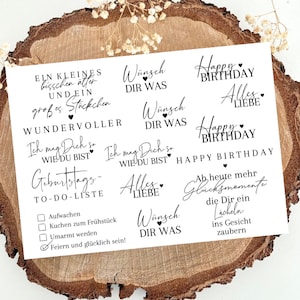 EIN KLEINES
bisschen älter
UND EIN
großes Stückchen
WUNDERVOLLER
Ich mag Dich so
WIE DU BIST
Geburtstags-
TO-DO-LISTE
Aufwachen
Kuchen zum Frühstück
Umarmt werden
Feiern und glücklich sein!
Wünsch
DIR WAS
Wünsch
DIR WAS
Ich mag Dich so
WIE DU BIST
Alles
LIEBE
Wünsch
DIR WAS
Happy
BIRTHDAY
Alles
LIEBE
Happy
BIRTHDAY
HAPPY BIRTHDAY
Ab heute mehr
Glücksmomente
die Dir ein
Lächeln
ins Gesicht
zaubern